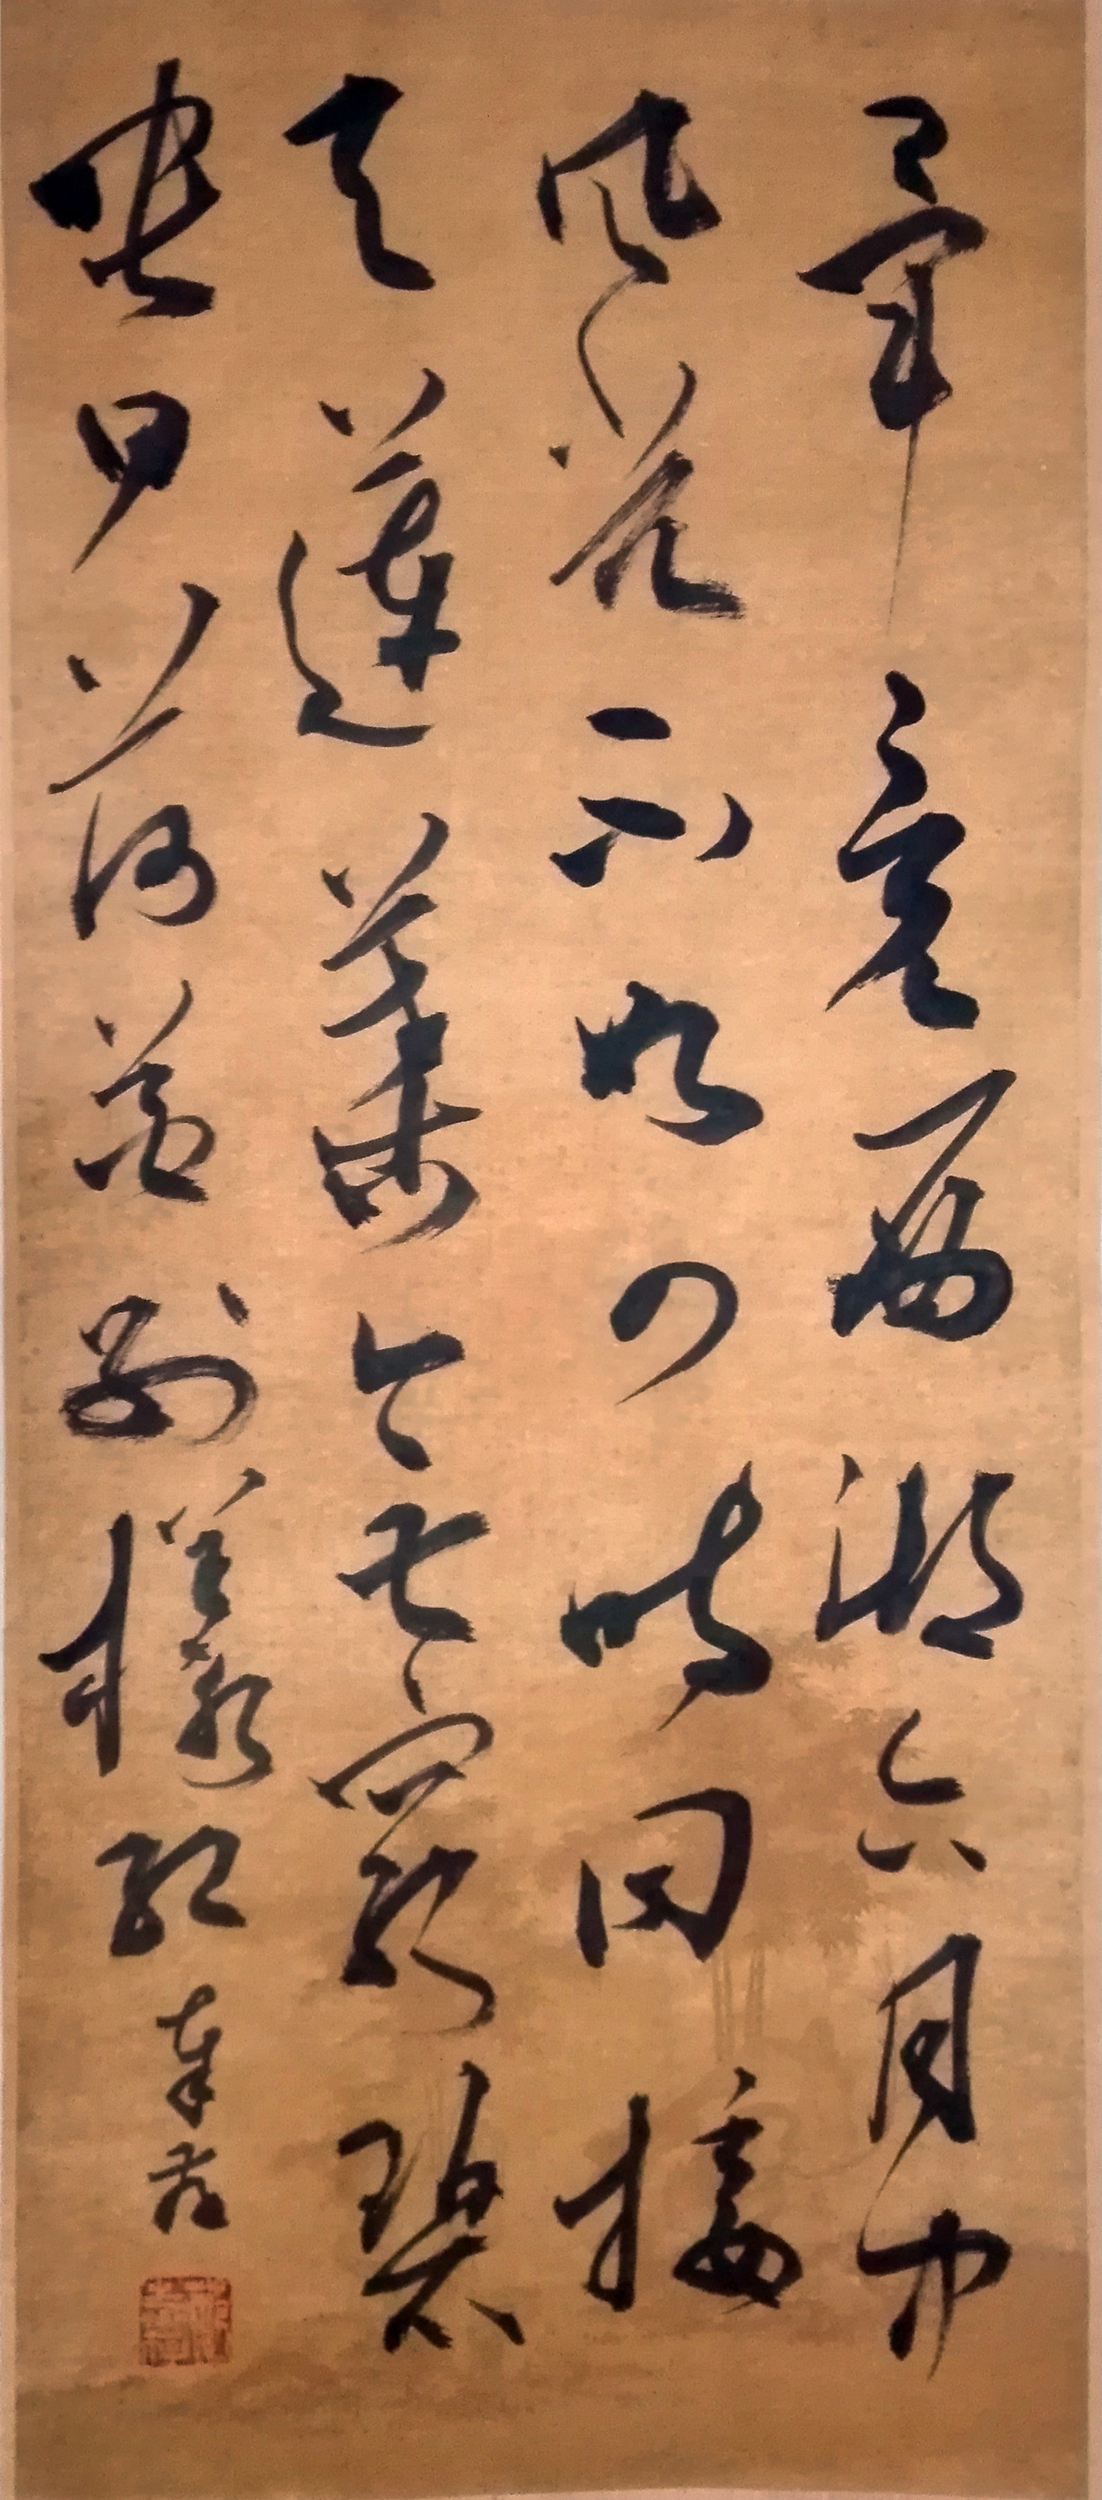 畢竟西湖六月中
風光不與四時同接
天蓮葉無窮碧
映日荷花別樣紅